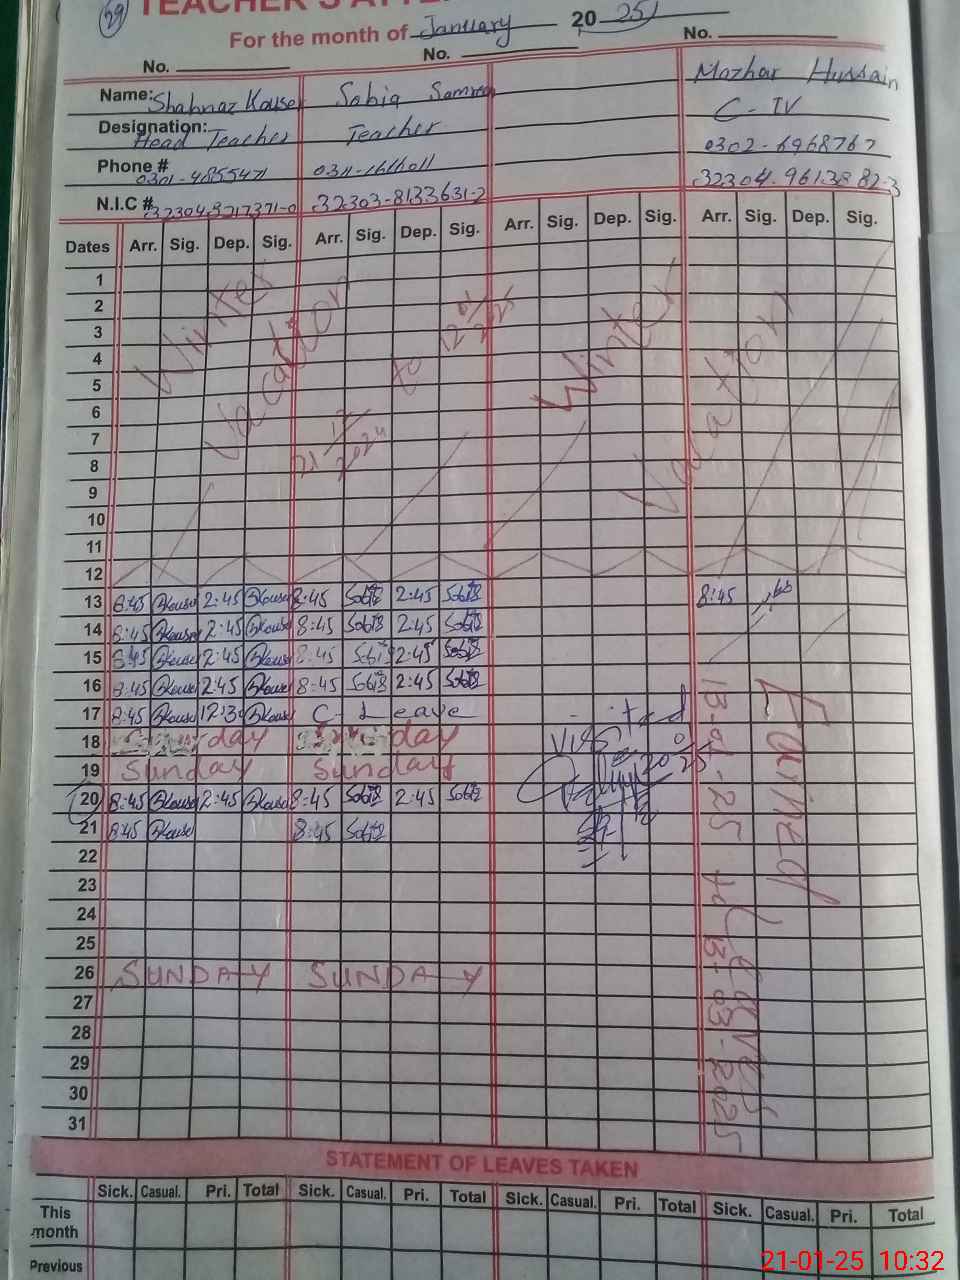 29 TEACHER'S ATTE
For the month of January 2025
No. No. No.
Name: Shahnaz Kouser Sobia Samreen Mazhar Hussain
Designation: Head Teacher Teacher C-IV
Phone # 0301-4855471 0311-1616011 0302-6968767
N.I.C # 32304 8217371-0 32303-8133631-2 32304-9613882-3
Dates Arr. Sig. Dep. Sig. Arr. Sig. Dep. Sig. Arr. Sig. Dep. Sig. Arr. Sig. Dep. Sig.
1
2
3
4
5
6
7
8
9
10
11
12
Winter Vacation 21 12/2024 to 12 01/2025 Winter Vacation
13 8:45 Kouser 2:45 Kouser 8:45 Sobia 2:45 Sobia 8:45
14 8:45 Kouser 2:45 Kouser 8:45 Sobia 2:45 Sobia
15 8:45 Kouser 2:45 Kouser 8:45 Sobia 2:45 Sobia
16 8:45 Kouser 2:45 Kouser 8:45 Sobia 2:45 Sobia
17 8:45 Kouser 12:30 Kouser C-Leave
18 day day
19 Sunday Sunday
20 8:45 Kouser 2:45 Kouser 8:45 Sobia 2:45 Sobia
21 8:45 Kouser 8:45 Sobia
22
23
24
25
26 SUNDAY SUNDAY
27
28
29
30
31
Visited
Earned Leaves
13-01-25 to 13-03-2025
STATEMENT OF LEAVES TAKEN
Sick. Casual. Pri. Total Sick. Casual. Pri. Total Sick. Casual. Pri. Total Sick. Casual. Pri. Total
This month
Previous
21-01-25 10:32